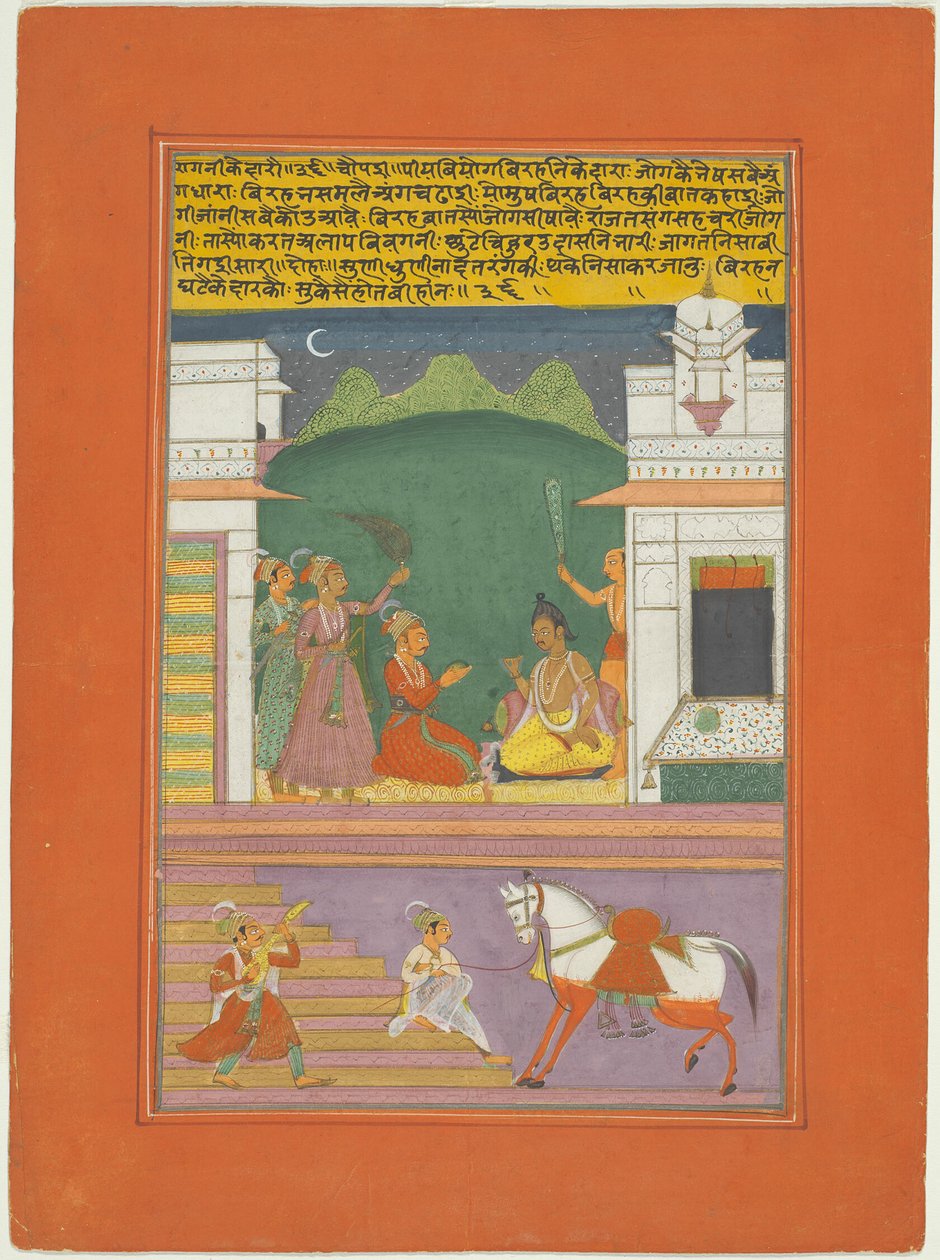 रागनी केदारौ॥३६॥चौपइ॥पीय बियोग बिरहनि केदाराः जोग कै नेष सबै अं
ग धाराः बिरह नसम लै अंग चढाइः
गी जांनी सबै कोउ आवैः बिरह बात स्यौं जोग सीषावैः राजत संग सहचरी जोग
नीः तास्यौ करत अलाप बिवगनीः छुटे चिहुर उदासनि नारीः जागत निसा बी
ति गइ सारी॥दोहाः॥सुणी धुणी नाद तरंग कीः थके निसाकर जानुः बिरहन
घटै केदारकोः सु कैसे होत बीहांनः॥३६॥